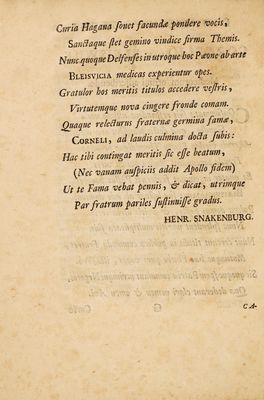 Curia Hagana fovet facundæ pondere vocis,
Sanctaque stet gemino vindice firma Themis.
Nunc quoque Delfenses in utroque hoc Pæone ab arte
BLEISVICIA medicas experientur opes.
Gratulor hos meritis titulos accedere vestris,
Virtutemque nova cingere fronde comam.
Quaque relecturus fraternæ germina famæ,
CORNELI, ad laudis culmina docta subis:
Hac tibi contingat meritis sic esse beatum,
(Nec vanam auspiciis addit Apollo fidem)
Ut te Fama vehat pennis, & dicat, utrimque
Par fratrum pariles sustinuisse gradus.
HENR. SNAKENBURG.
G
CA-